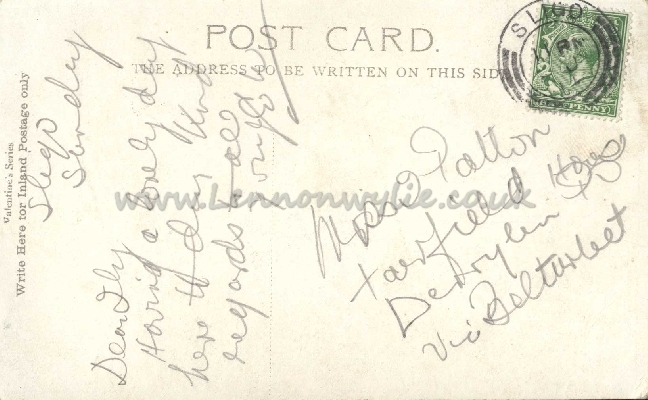 POST CARD.
THE ADDRESS TO BE WRITTEN ON THIS SIDE
Valentine's Series
Write Here for Inland Postage only
SLIGO
PENNY
Sligo
Sunday
Having a lovely day
here to day Kind
regards to all
Patton
Fairfield House
Derrylin
Via Belturbet
www.Lennonwylie.co.uk